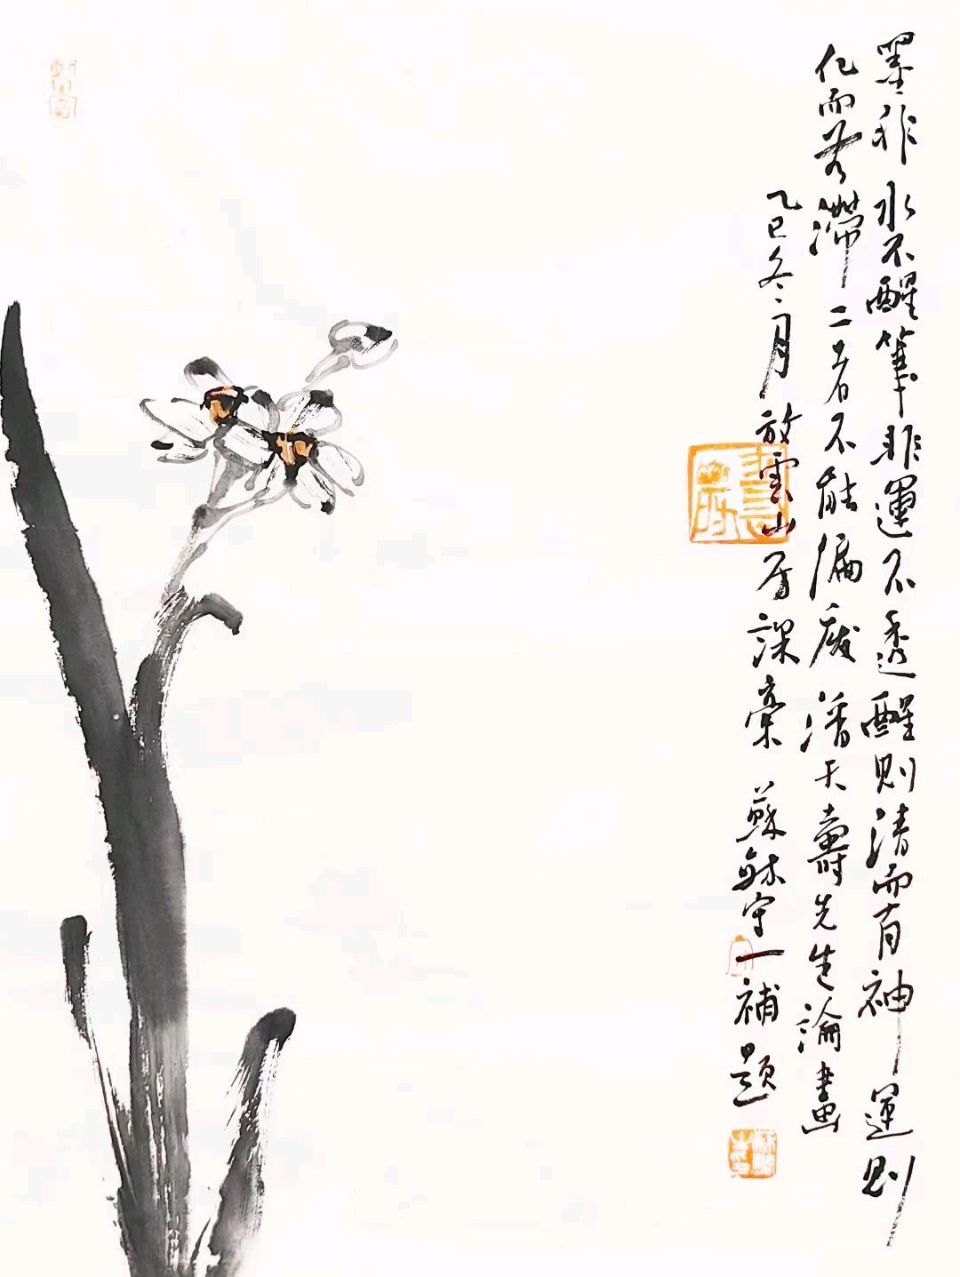 墨非水不醒筆非運不透醒則清而有神運則
化而無滯二者不能偏廢潘天壽先生論畫
乙巳冬月放雲山房課稾蘇穌守一補題